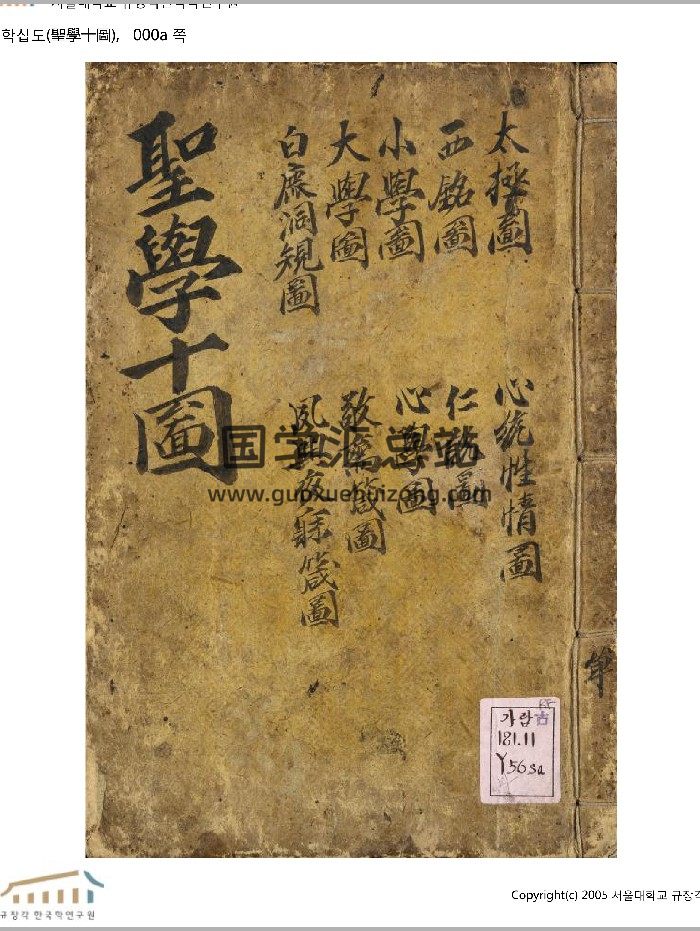 학십도(聖學十圖), 000a 쪽
聖學十圖
太極圖
西銘圖
小學圖
大學圖
白鹿洞規圖
心統性情圖
仁說圖
心學圖
敬齋箴圖
夙興夜寐箴圖
国学汇宗站
www.guoxuehuizong.com
가람古
181.11
Y56sa
규장각 한국학연구원
Copyright(c) 2005 서울대학교 규장각